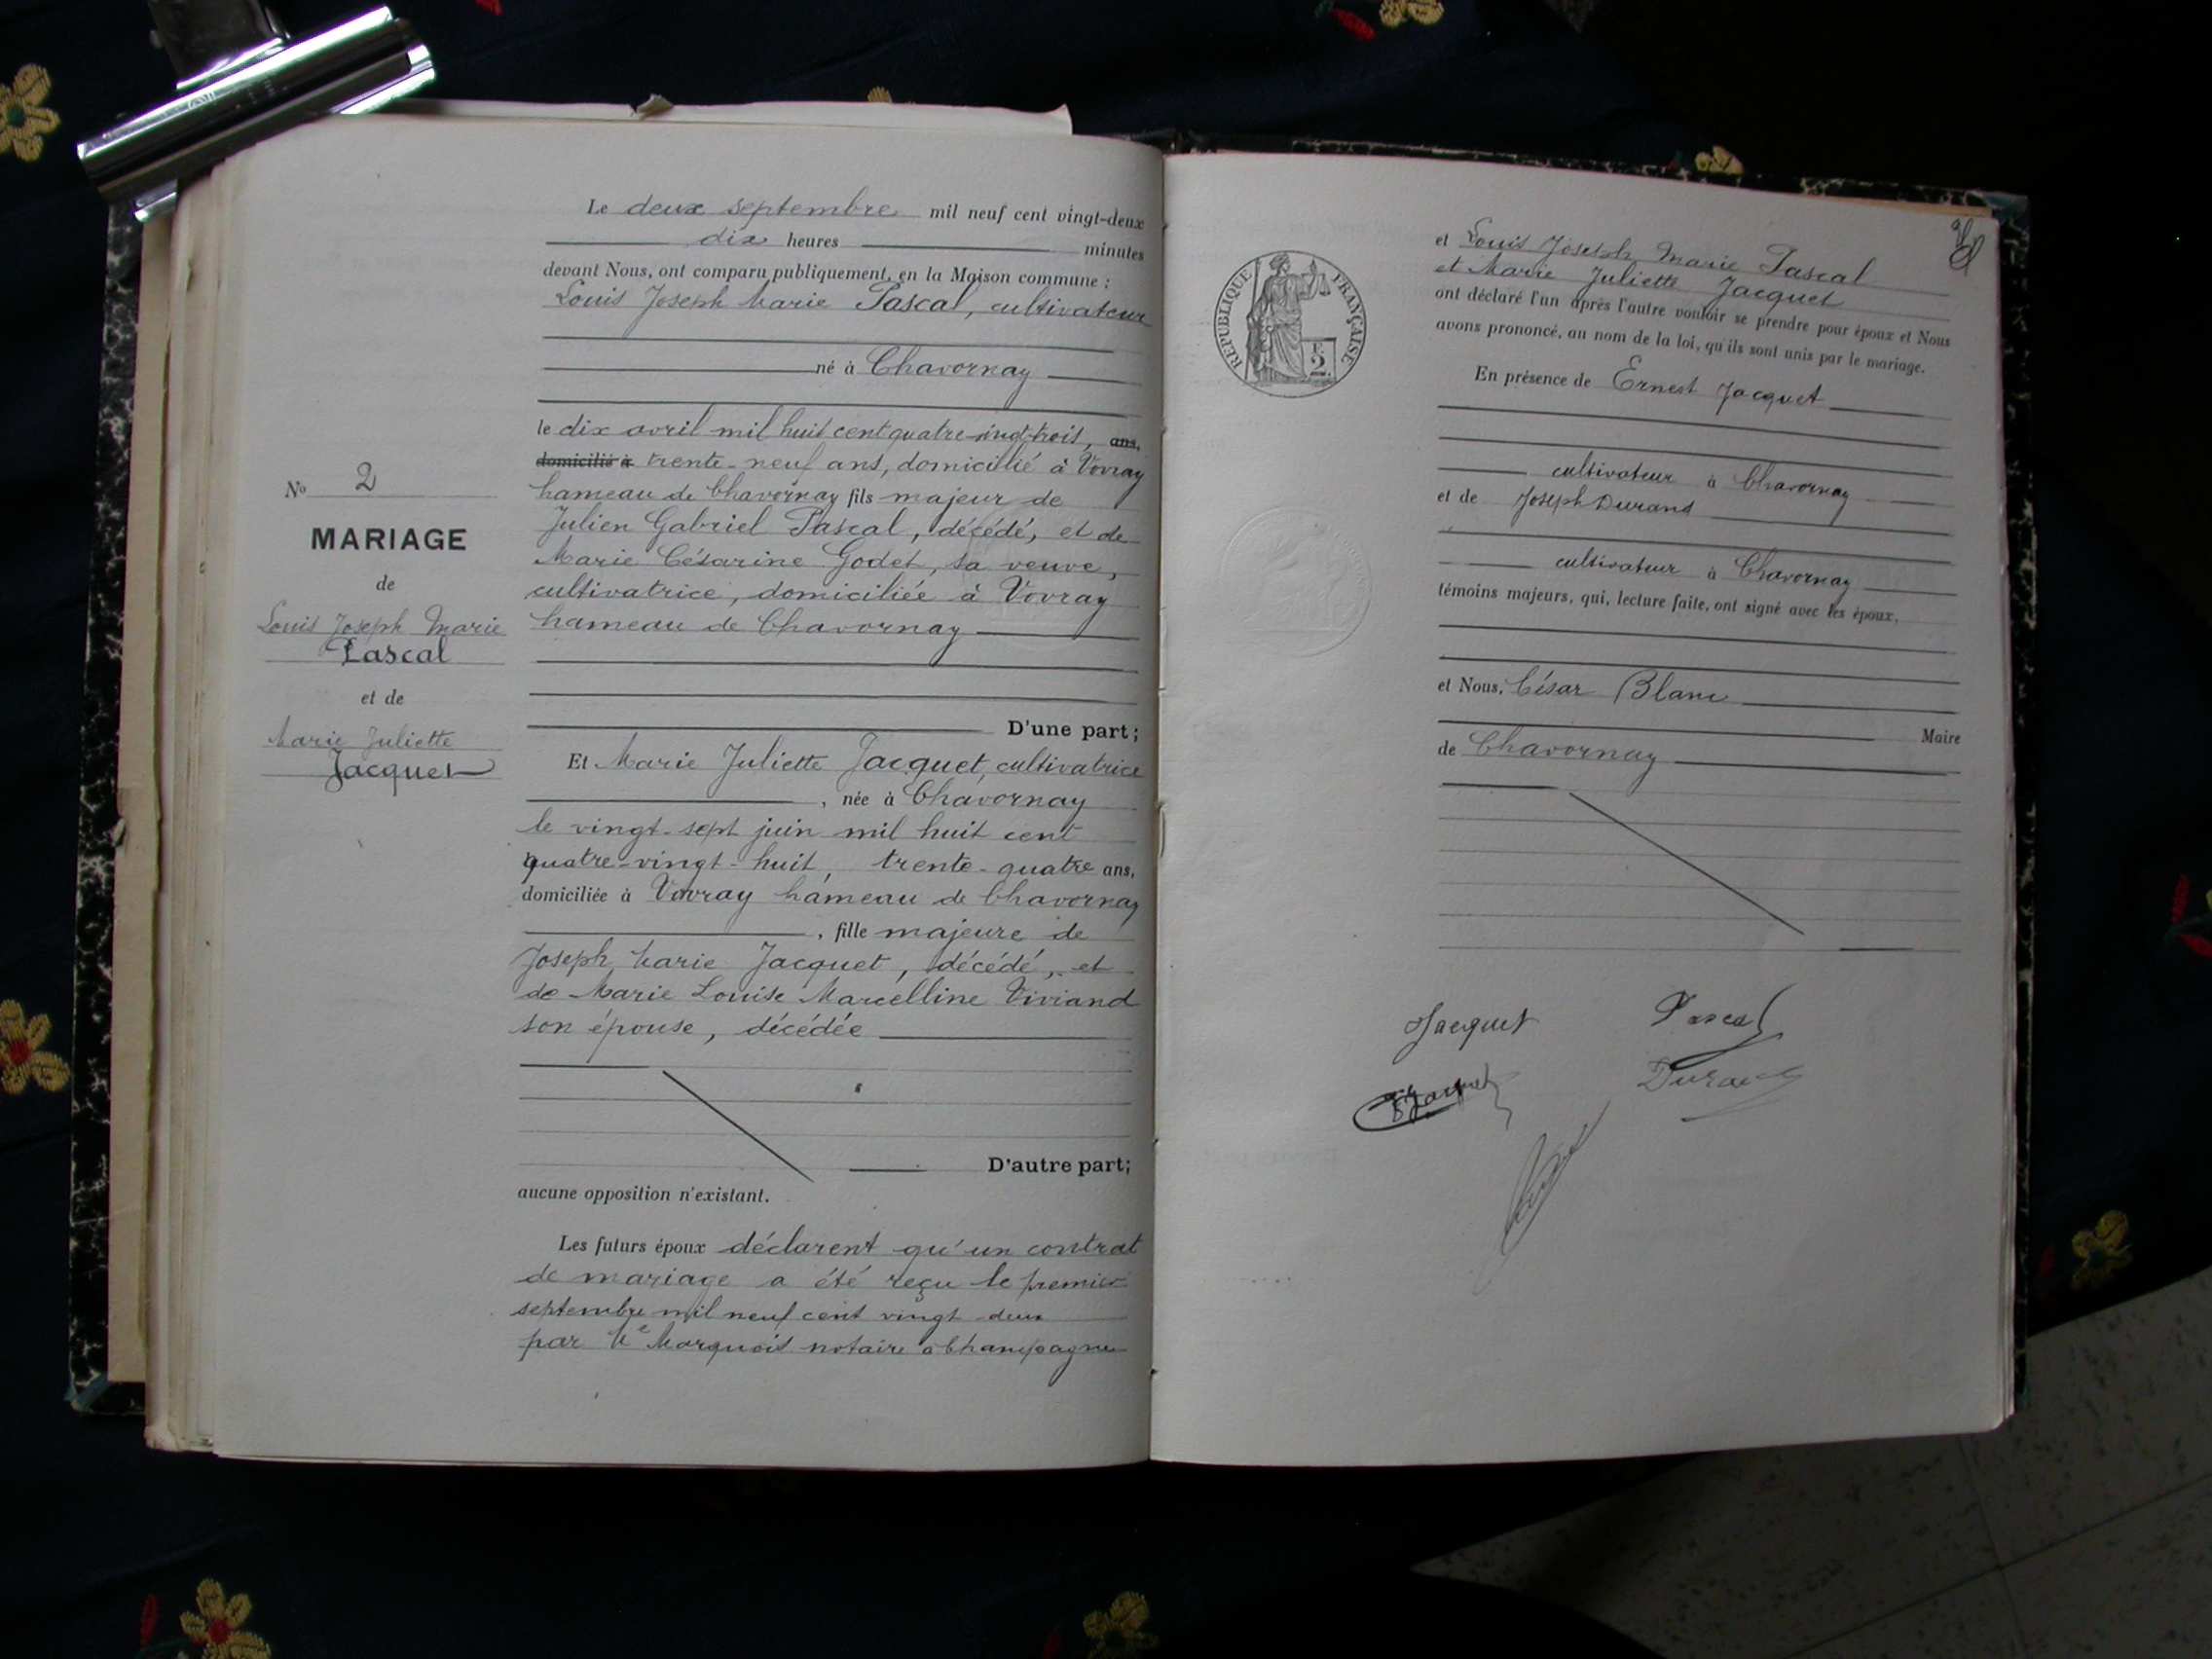 Le deux septembre mil neuf cent vingt-deux
dix heures minutes
devant Nous, ont comparu publiquement, en la Maison commune :
Louis Joseph Marie Pascal, cultivateur
né à Chavornay
le dix avril mil huit cent quatre-vingt-trois, ans,
domicilié à trente-neuf ans, domicilié à Vovray
hameau de Chavornay fils majeur de
Julien Gabriel Pascal, décédé, et de
Marie Césarine Godet, sa veuve,
cultivatrice, domiciliée à Vovray
hameau de Chavornay
D'une part;
Et Marie Juliette Jacquet, cultivatrice
, née à Chavornay
le vingt-sept juin mil huit cent
quatre-vingt-huit, trente-quatre ans,
domiciliée à Vovray hameau de Chavornay
, fille majeure de
Joseph Marie Jacquet, décédé, et
de Marie Louise Marcelline Viviand
son épouse, décédée
D'autre part;
aucune opposition n'existant.
Les futurs époux déclarent qu'un contrat
de mariage a été reçu le premier
septembre mil neuf cent vingt-deux
par Me Marquois notaire à Champagne
No 2
MARIAGE
de
Louis Joseph Marie
Pascal
et de
Marie Juliette
Jacquet
RÉPUBLIQUE FRANÇAISE
2
et Louis Joseph Marie Pascal
et Marie Juliette Jacquet
ont déclaré l'un après l'autre vouloir se prendre pour époux et Nous
avons prononcé, au nom de la loi, qu'ils sont unis par le mariage.
En présence de Ernest Jacquet
cultivateur à Chavornay
et de Joseph Durand
cultivateur à Chavornay
témoins majeurs, qui, lecture faite, ont signé avec les époux,
et Nous, César Blanc
Maire
de Chavornay
Jacquet Pascal
E Jacquet Durand